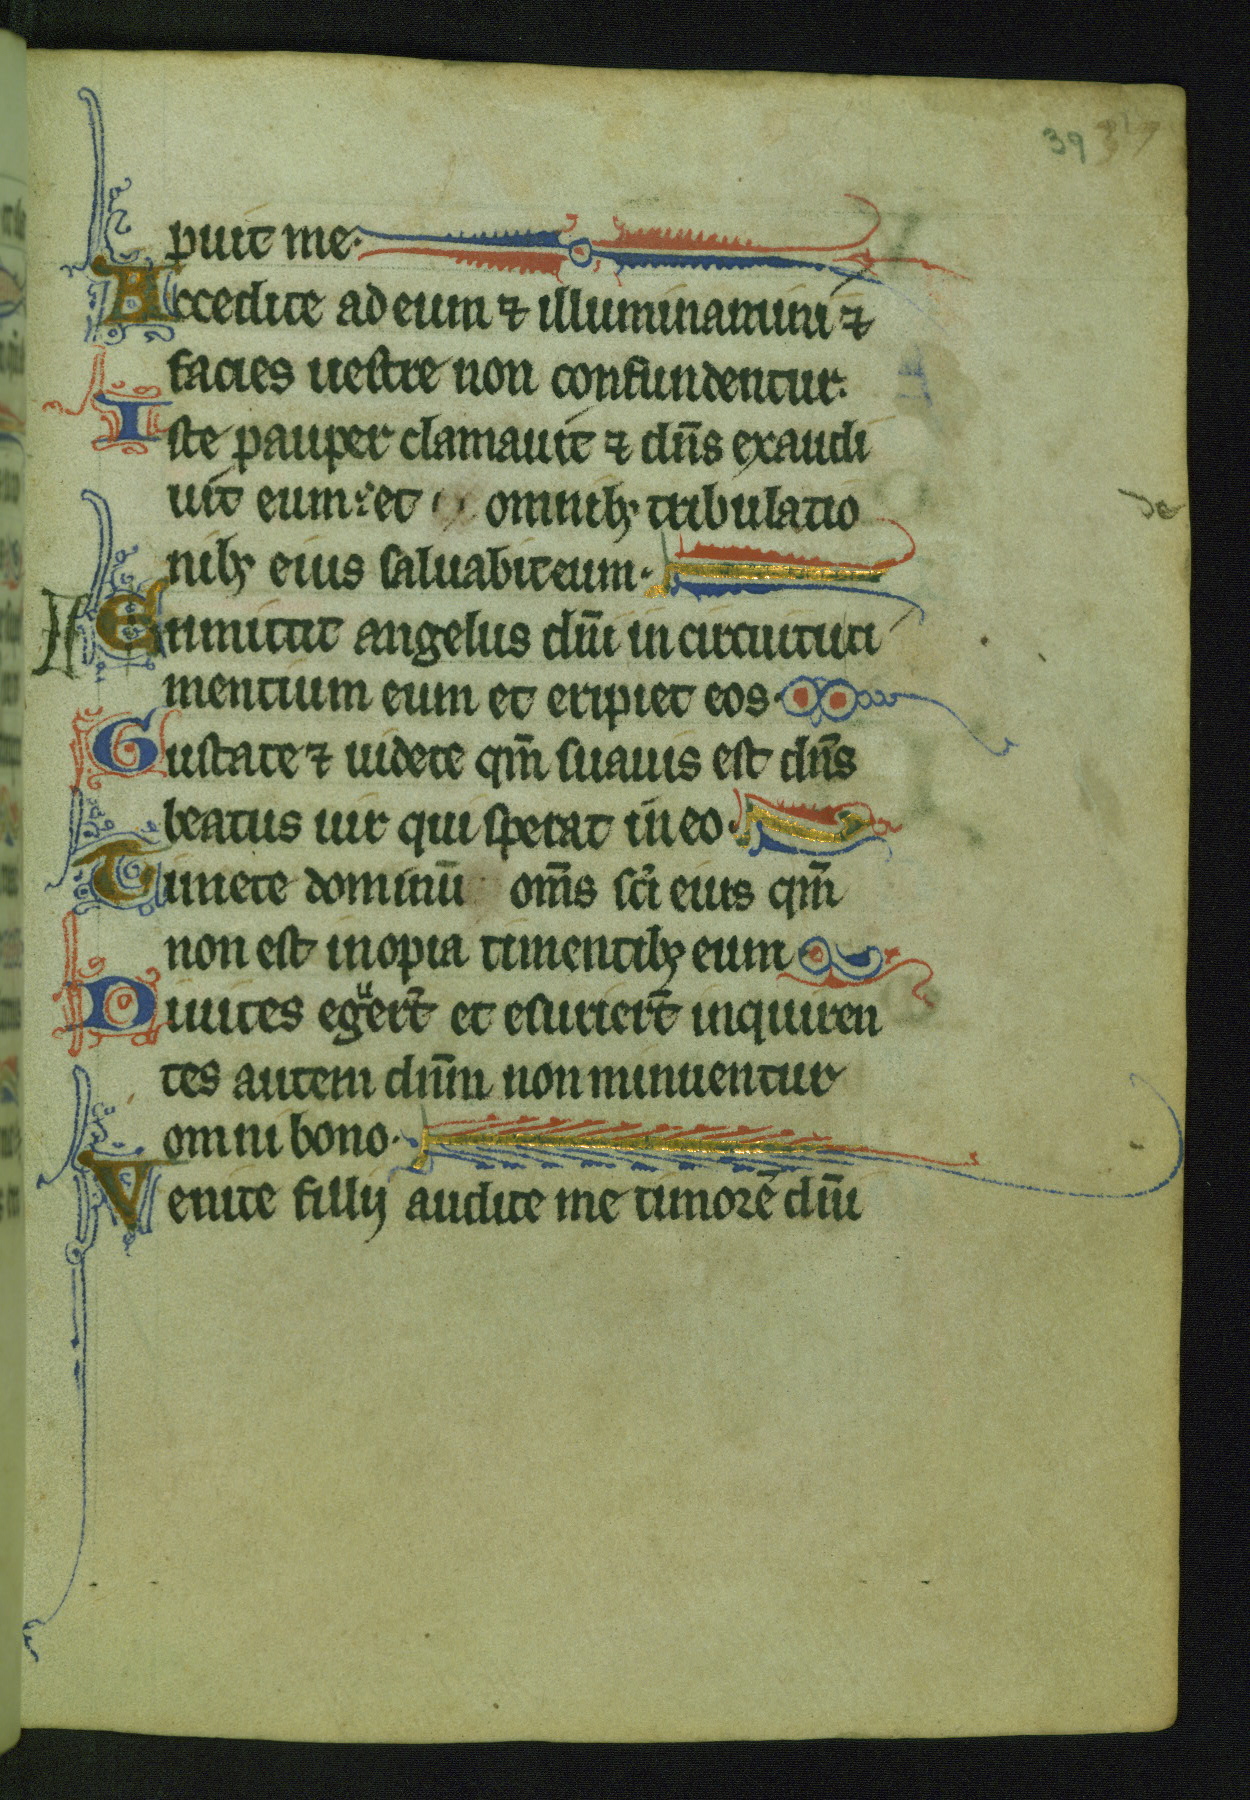 39 37
puit me.
Accedite ad eum ⁊ illuminamini ⁊
facies uestre non confundentur.
Iste pauper clamauit ⁊ dn̄s exaudi
uit eum: et omnibꝫ tribulatio
nibꝫ eius saluabit eum.
de
Inmittit angelus dn̄i in circuitu ti
mentium eum et eripiet eos.
Gustate ⁊ uidete qm̄ suauis est dn̄s
beatus uir qui sperat in eo.
Timete dominū om̄s sc̄i eius qm̄
non est inopia timentibꝫ eum
Diuites eguert̄ et esuriert̄ inquiren
tes autem dn̄m non minuentur
omni bono.
Venite filij audite me timorē dn̄i